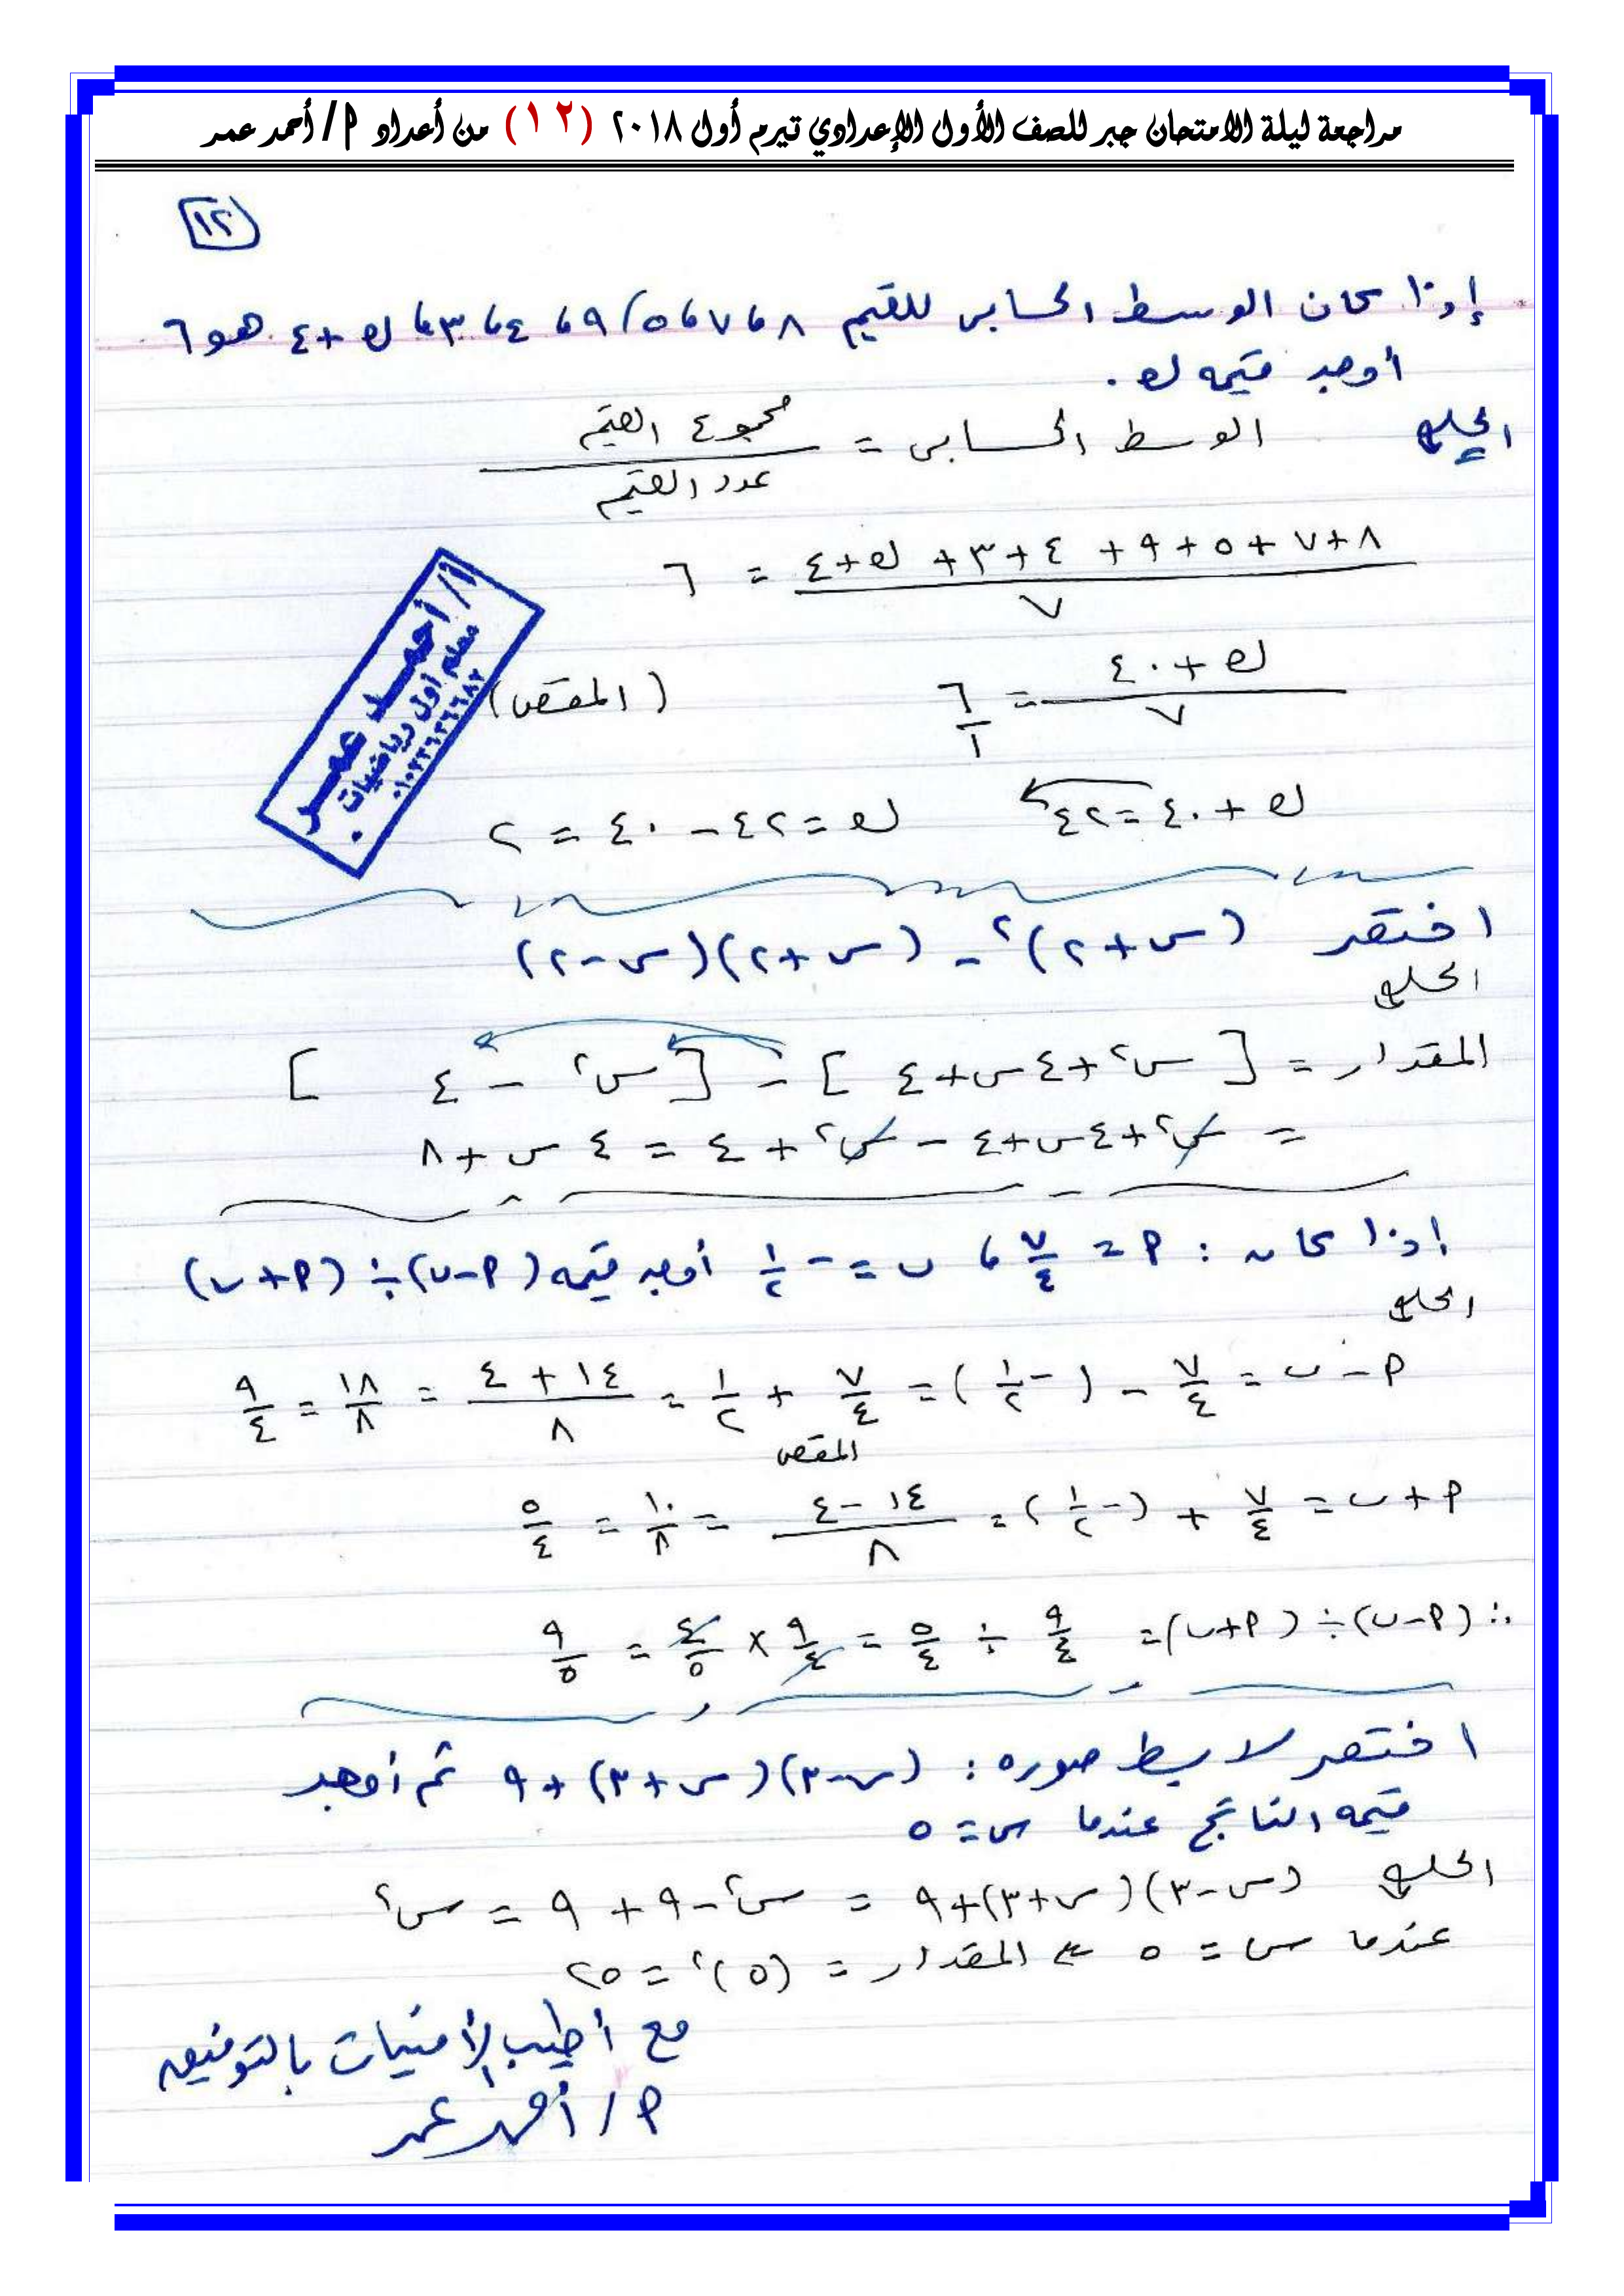 مراجعة ليلة الامتحان جبر للصف الأول الإعدادي تيرم أول ٢٠١٨ (١٢) من أعداد ٩/ أحمد عمر
١٢
إذا كان الوسط الحسابى للقيم ٨ ، ٧ ، ٥ / ٩ ، ٤ ، ٣ ، ك + ٤ هو ٦
أوجد قيمه ك .
الحل الوسط الحسابى = مجموع القيم / عدد القيم
٨ + ٧ + ٥ + ٩ + ٤ + ٣ + ك + ٤ / ٧ = ٦
ك + ٤٠ / ٧ = ٦ / ١ (المقص)
ك + ٤٠ = ٤٢ ك = ٤٢ - ٤٠ = ٢
أ/ أحمد عمر
معلم أول رياضيات
اختصر (س + ٢)² - (س + ٢)(س - ٢)
الحل
المقدار = [س² + ٤س + ٤] - [س² - ٤]
= س² + ٤س + ٤ - س² + ٤ = ٤س + ٨
إذا كان : ٩ = ٧/٤ ، ب = -١/٢ أوجد قيمه (٩ - ب) ÷ (٩ + ب)
الحل
٩ - ب = ٧/٤ - (-١/٢) = ٧/٤ + ١/٢ = ١٤ + ٤ / ٨ = ١٨/٨ = ٩/٤
المقص
٩ + ب = ٧/٤ + (-١/٢) = ١٤ - ٤ / ٨ = ١٠/٨ = ٥/٤
∴ (٩ - ب) ÷ (٩ + ب) = ٩/٤ ÷ ٥/٤ = ٩/٤ × ٤/٥ = ٩/٥
اختصر لابسط صوره : (س - ٣)(س + ٣) + ٩ ثم أوجد
قيمه الناتج عندما س = ٥
الحل (س - ٣)(س + ٣) + ٩ = س² - ٩ + ٩ = س²
عندما س = ٥ ⇐ المقدار = (٥)² = ٢٥
مع أطيب الأمنيات بالتوفيق
٩/ أحمد عمر